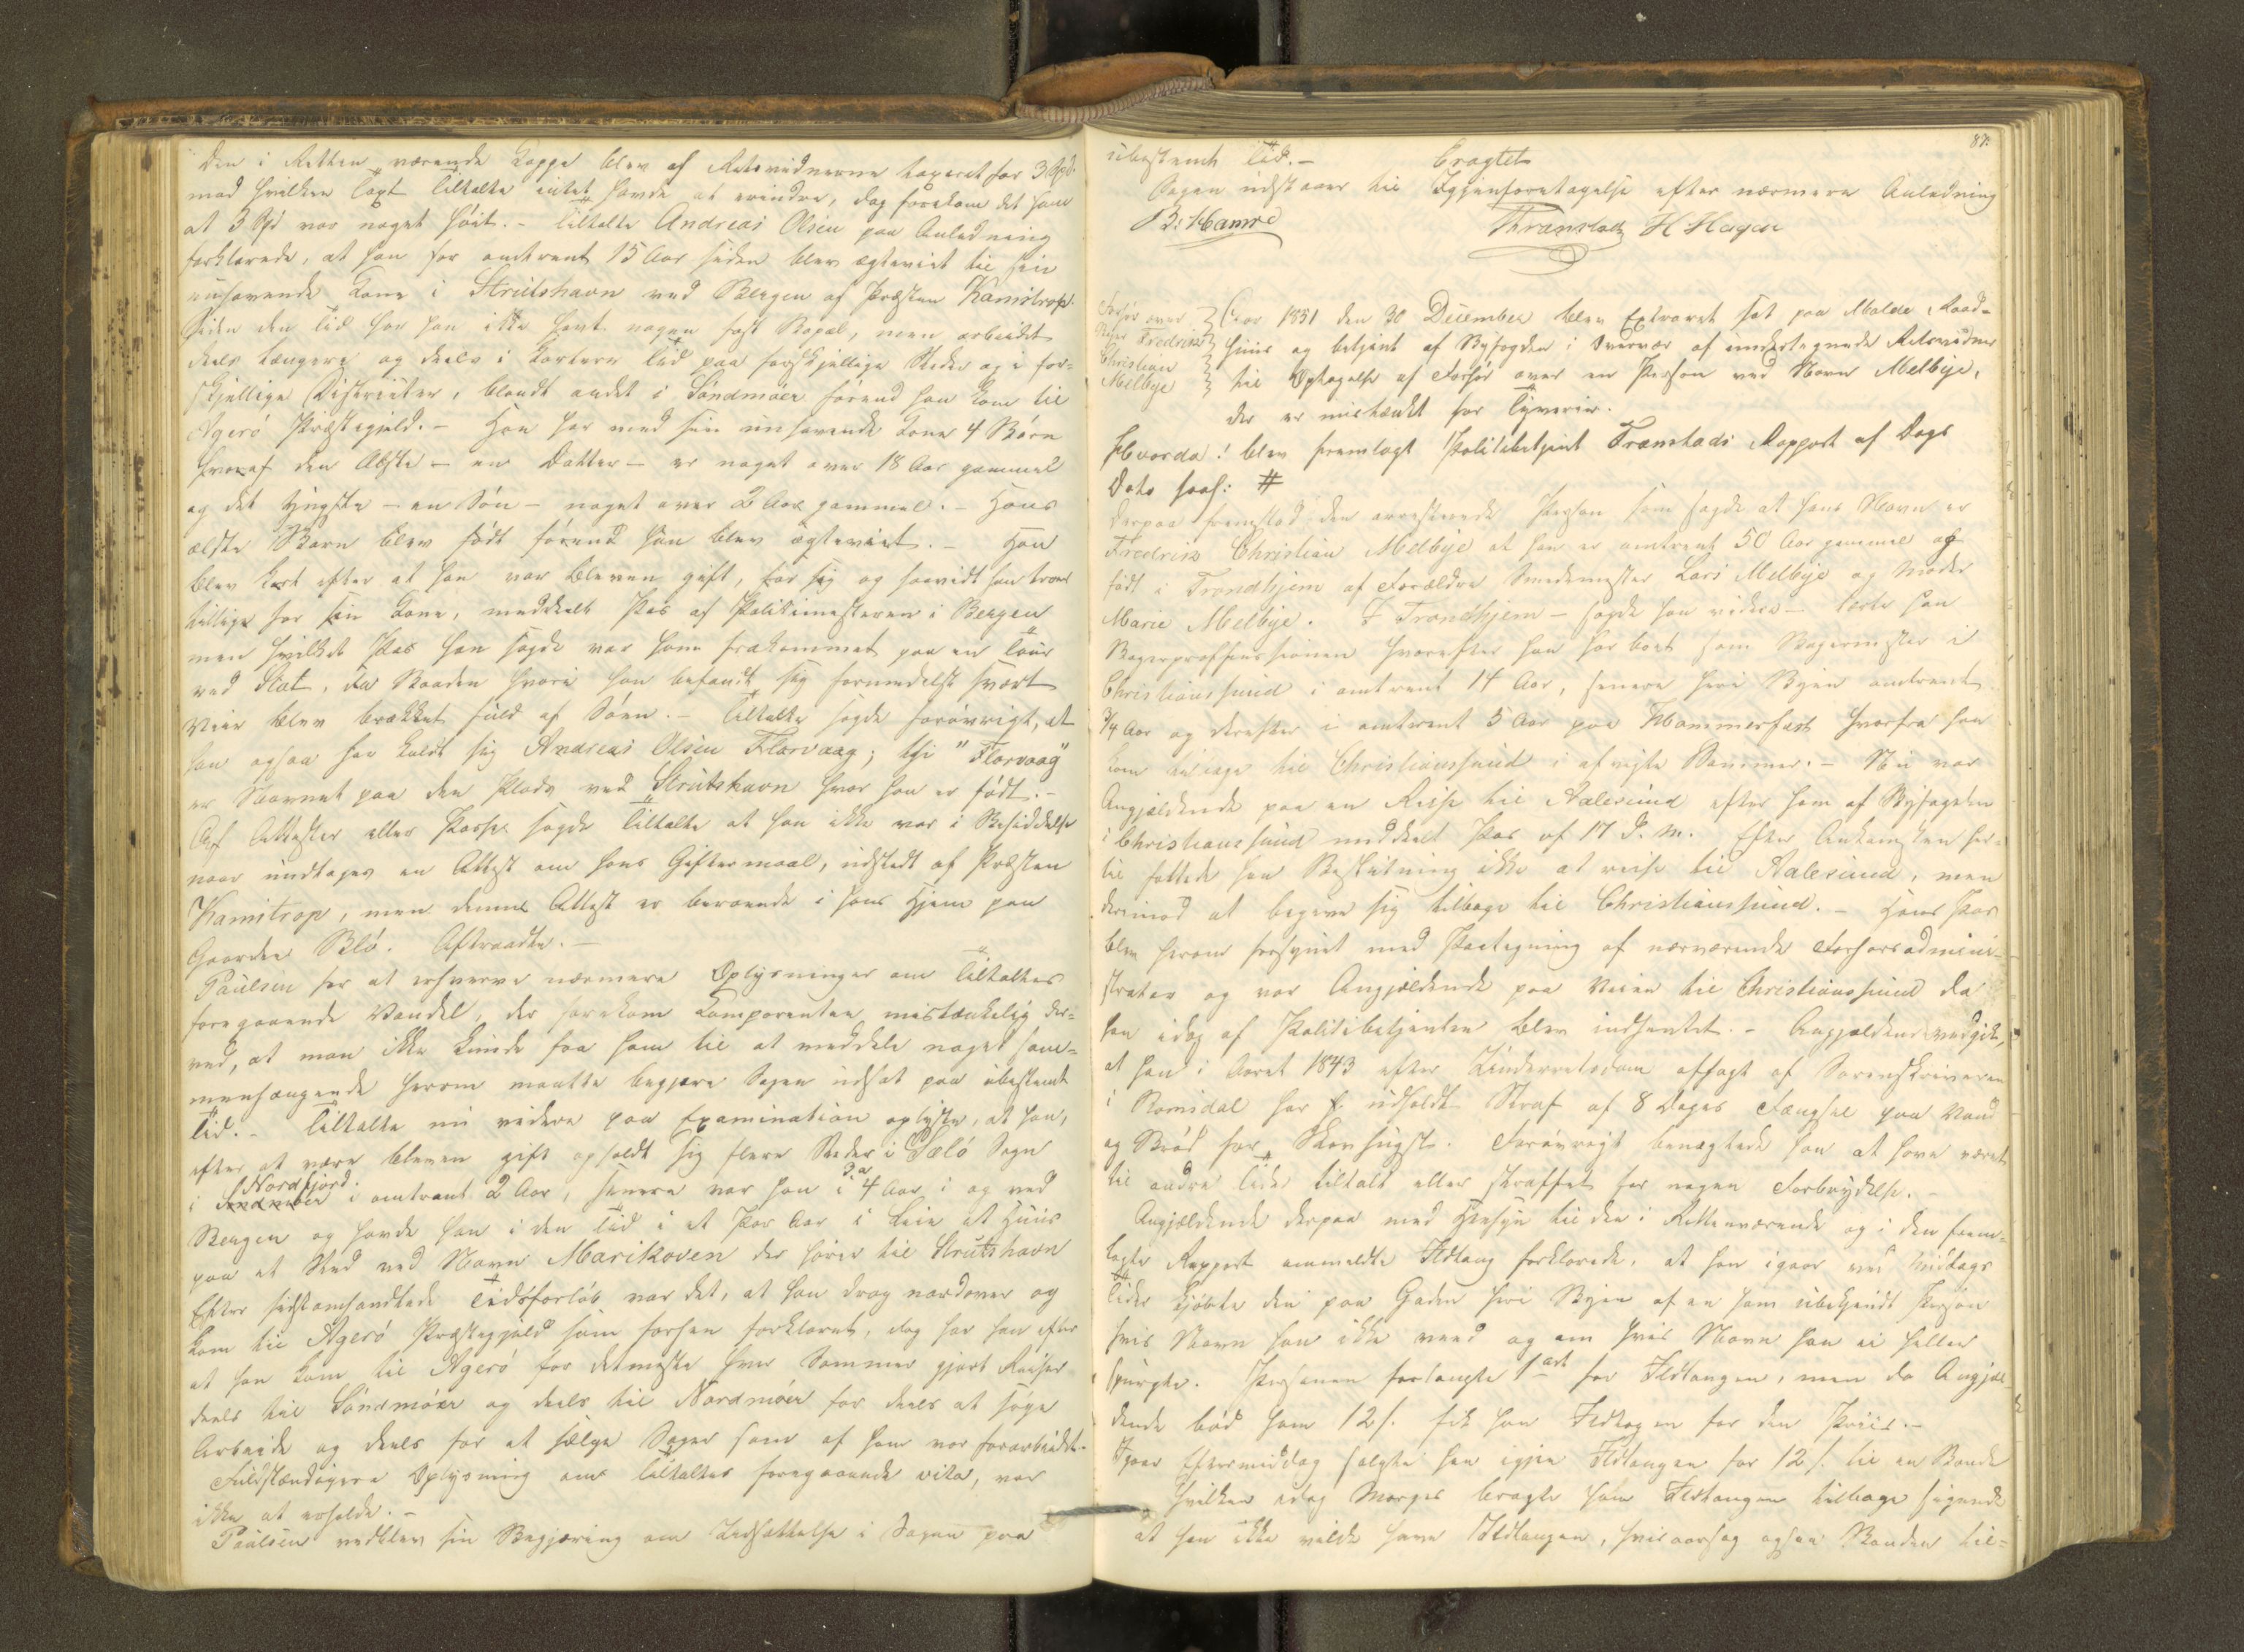 Den i Retten værende Kappe blev af Retsvidnerne taxeret for 3 Spd
mod hvilken Taxt Tiltalte intet havde at erindre, dog forekom det ham
at 3 Spd var noget høit. - Tiltalte Andreas Olsen paa Anledning
forklarede, at han for omtrent 15 Aar siden blev ægteviet til sin
nuhavende Kone i Strutshavn ved Bergen af Præsten Kamstrop.
Siden den Tid har han ikke havt nogen fast Bopæl, men arbeidet
deels længere og deels i kortere Tid paa forskjellige Steder og i for=
skjellige Districter, blandt andet i Søndmøer førend han kom til
Agerø Præstegjeld. - Han har med sin nuhavende Kone 4 Børn
hvoraf den Ældste - en Datter - er noget over 18 Aar gammel
og det Yngste - en Søn - noget over 2 Aar gammel. - Hans
ældste Barn blev født førend han blev ægteviet. - Han
blev kort efter at han var bleven gift, for sig og saavidt han troer
tillige for sin Kone, meddeelt Pas af Politimesteren i Bergen
men hvilket Pas han sagde var ham frakommet paa en Tour
ved Stat, da Baaden hvori han befandt sig formedelst svært
Veir blev brækket fuld af Søen. - Tiltalte sagde forøvrigt, at
han ogsaa har kaldt sig Andreas Olsen Florvaag; thi "Florvaag"
er Navnet paa den Plads ved Strutshavn hvor han er født. -
Af Attester eller Passe sagde Tiltalte at han ikke var i Besiddelse
naar undtages en Attest om hans Giftermaal, udstedt af Præsten
Kamstrop, men denne Attest er beroende i hans Hjem paa
Gaarden Blø. Aftraadte. -
Paulsen for at erhverve nærmere Oplysninger om Tiltaltes
foregaaende Vandel, der forekom Komparenten mistænkelig der=
ved, at man ikke kunde faa ham til at meddele noget sam=
menhængende herom maatte begjære Sagen udsat paa ubestemt
Tid. - Tiltalte nu videre paa Examination oplyste, at han,
efter at være bleven gift opholdt sig flere Steder i Sælø Sogn
i Søndmøer Nordfjord i omtrent 2 Aar, senere var han i 3 a 4 Aar i og ved
Bergen og havde han i den Tid i et Par Aar i Leie et Huus
paa et Sted ved Navn Marikoven der hører til Strutshavn
Efter sidstomhandlede Tidsforløb var det, at han drog nordover og
kom til Agerø Præstegjeld som forhen forklaret, dog har han efter
at han kom til Agerø for detmeste hver Sommer gjort Reiser
deels til Søndmøer og deels til Nordmøer for deels at søge
Arbeide og deels for at sælge Sager som af ham var forarbeidet.
Fuldstændigere Oplysning om Tiltaltes foregaaende vita, var
ikke at erholde. -
Paulsen vedblev sin Begjæring om Udsættelse i Sagen paa
87.
ubestemt Tid. - Eragtet
Sagen udstaaer til Igjenforetagelse efter nærmere Anledning
B. Hamre Thranstad H Hagen
Forhør over
Fredrik
Christian
Melbye
Aar 1851 den 30 December blev Extraret sat paa Molde Raad-
huus og betjent af Byfogden i Overvær af undertegnede Retsvidner
til Optagelse af Forhør over en Person ved Navn Melbye,
der er mistænkt for Tyverie.
Hvorda! blev fremlagt Politibetjent Transtads Rapport af Dags
Dato saal: #
Derpaa fremstod den arresterede Person som sagde at hans Navn er
Fredrik Christian Melbye at han er omtrent 50 Aar gammel og
født i Trondhjem af Forældre Smedemester Lars Melbye og Moder
Marie Melbye. I Trondhjem - sagde han videre - lærte han
Bagerproffessionen hvorefter han har boet som Bagermester i
Christianssund i omtrent 14 Aar, senere heri Byen omtrent
3/4 Aar og derefter i omtrent 5 Aar paa Hammerfest hvorfra han
kom tilbage til Christianssund i afvigte Sommer. - Nu var
Angjældende paa en Reise til Aalesund efter ham af Byfogden
i Christianssund meddeelt Pas af 17 d. M. Efter Ankomsten her=
til fattede han Beslutning ikke at reise til Aalesund, men
derimod at begive sig tilbage til Christianssund. - Hans Pas
blev herom forsynet med Paategning af nærværende Forhørsadmini-
strator og var Angjældende paa Veien til Christianssund da
han idag af Politibetjenten blev indhentet. - Angjældende vedgik,
at han i Aaret 1843 efter Underretsdom afsagt af Sorenskriveren
i Romsdal har udholdt Straf af 8 Dages Fængsel paa Vand
og Brød for Skovhugst. Forøvrigt benægtede han at have været
til andre Tider tiltalt eller straffet for nogen Forbrydelse. -
Angjældende derpaa med Hensyn til den i Retten værende og i den frem-
lagte Rapport ommeldte Ildtang forklarede, at han igaar ved Middags
Tider kjøbte den paa Gaden heri Byen af en ham ubekjendt Person
hvis Navn han ikke veed og om hvis Navn han ei heller
spurgte. Personen forlangte 1 ort for Ildtangen, men da Angjæl-
dende bød ham 12 s. fik han Ildtangen for den Priis. -
Igaar Eftermiddag solgte han igjen Ildtangen for 12 s. til en Bonde
hvilken idag Morges bragte ham Ildtangen tilbage sigende
at han ikke vilde have Ildtangen, hvisaarsag ogsaa Bonden til=